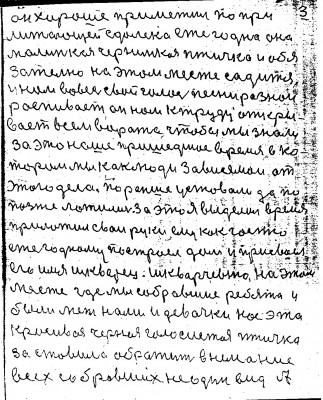 3
он хороше приметил по при
летающей сдалека ежегодна она
маленкая черненкая птичка и обя
зателно на этом месте садится,
и нам во весь свой голос песни разной
распивает он нам к труду откры
вает всем вората, чтобы мы знали
за это наше пришедшие время в ко
тором мы как люди зависемои от
этого дела, пораньше уставали да по
позже ложились. За это я выделил время
приложил свои руки ему как гостю
ежегодному построел дом и присвоил
его имя шкварец: шкварчевно, на этом
месте где мы собравшие ребята и
были меж нами и девочки нас эта
красивая черная голосистая птичка
заставила обратить внимание
всех собравших не один вид А